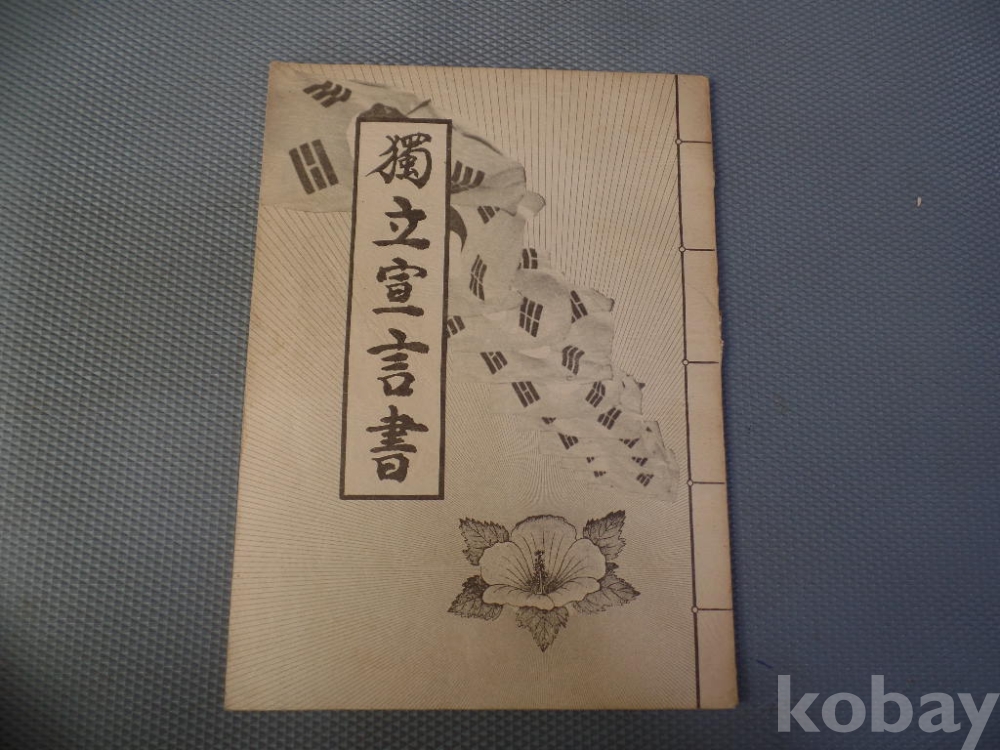 獨立宣言書
kobay